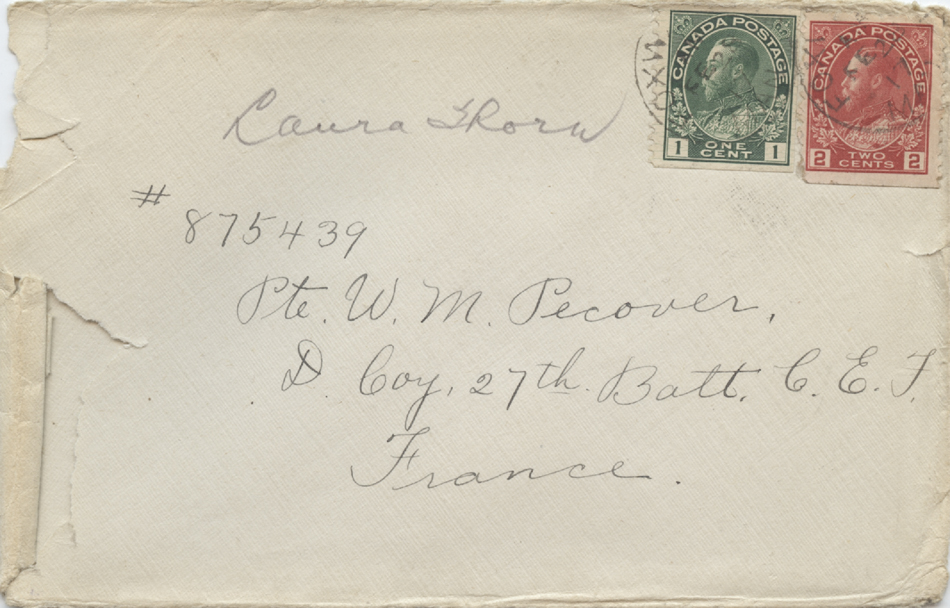 CANADA POSTAGE
1 ONE CENT 1
CANADA POSTAGE
2 TWO CENTS 2
Laura Thorn
# 875439
Pte. W. M. Pecover,
D Coy, 27th. Batt. C. E. F.
France.